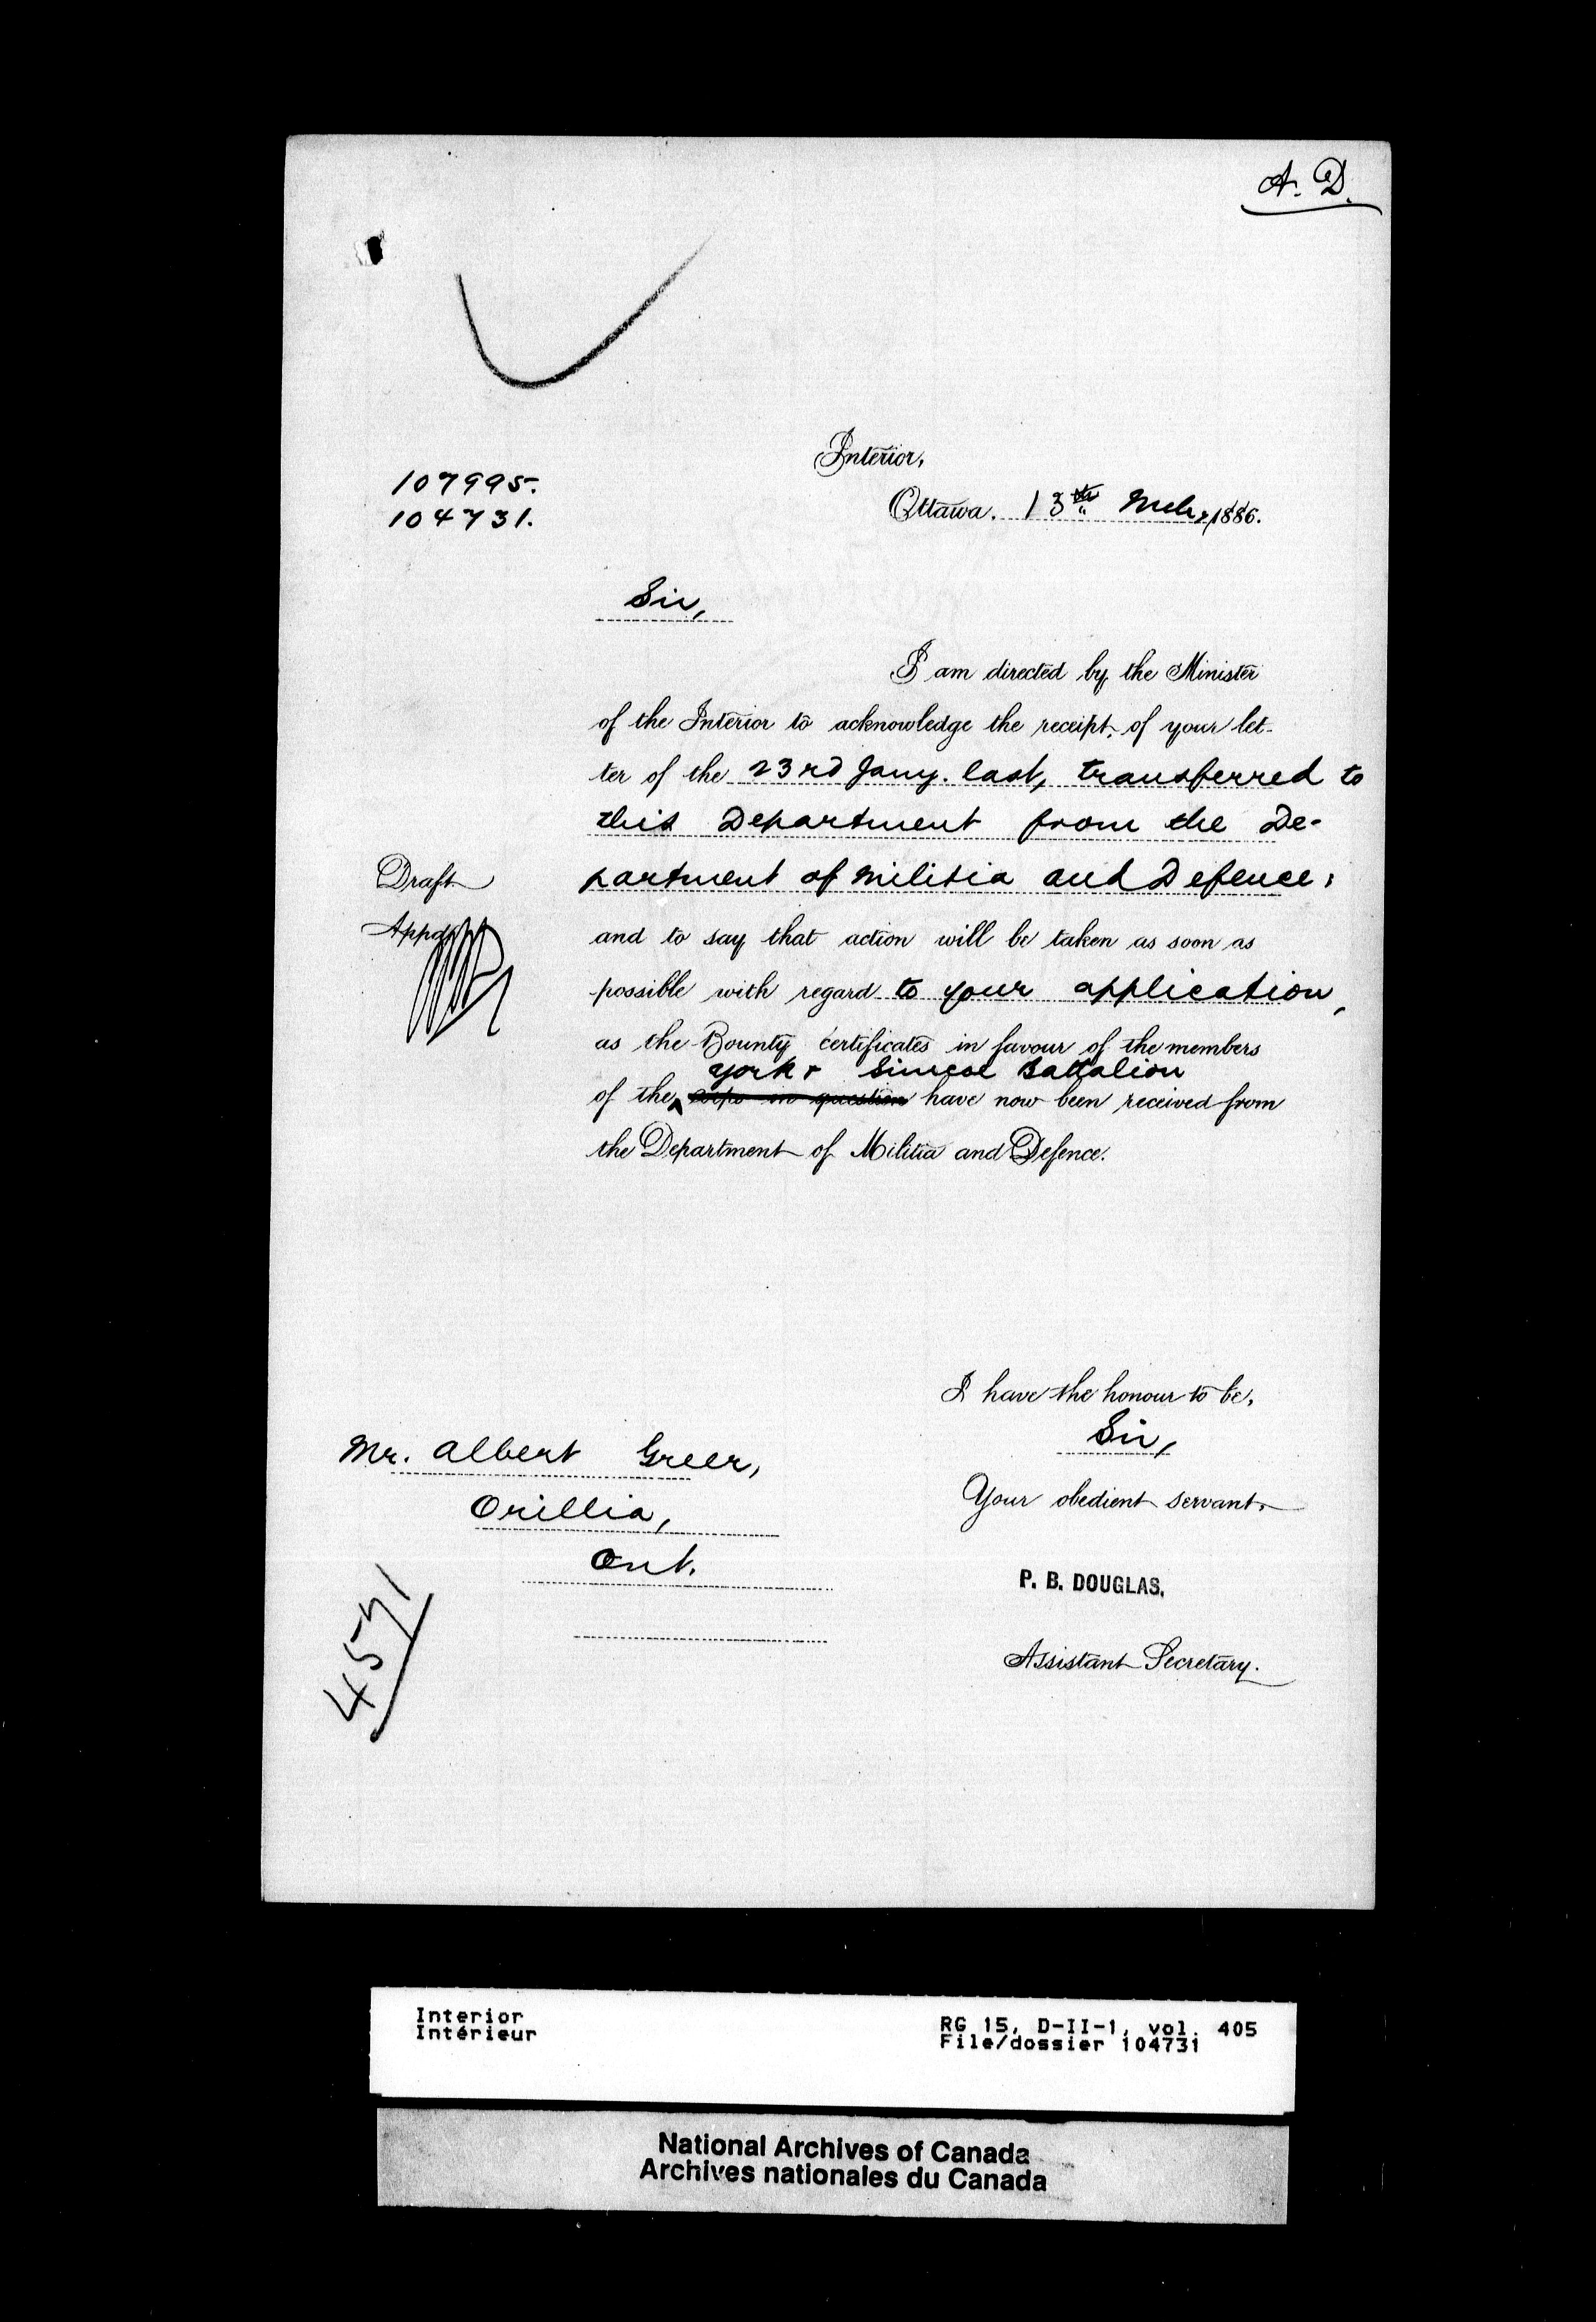 A. D.
Interior,
107995.
104731.
Ottawa. 13th Mch, 1886.
Sir,
I am directed by the Minister
of the Interior to acknowledge the receipt of your let-
ter of the 23rd Jany. last, transferred to
this Department from the De-
partment of Militia and Defence;
Draft
Appd
and to say that action will be taken as soon as
possible with regard to your application,
as the Bounty certificates in favour of the members
York & Simcoe Battalion
of the corps in question have now been received from
the Department of Militia and Defence.
I have the honour to be,
Sir,
Your obedient servant,
P. B. DOUGLAS.
Assistant Secretary.
Mr. Albert Greer,
Orillia,
Ont.
4571
Interior
Intérieur
RG 15, D-II-1, vol. 405
File/dossier 104731
National Archives of Canada
Archives nationales du Canada